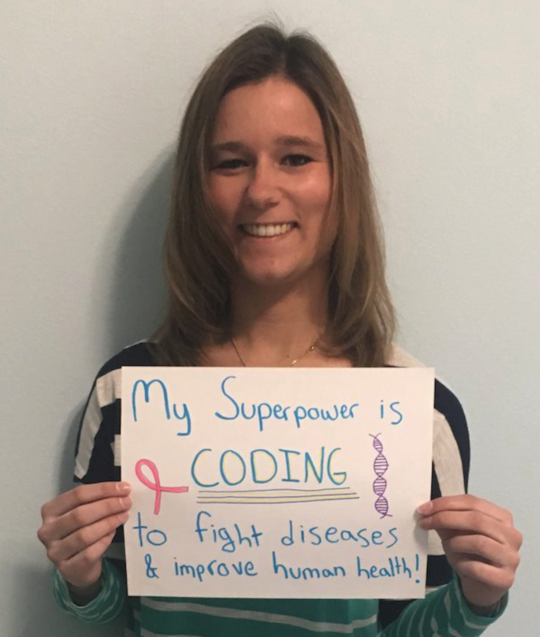 My Superpower is
CODING
to fight diseases
& improve human health!